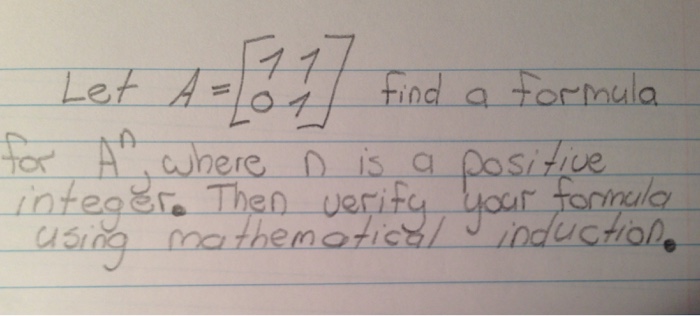 Let A = [1 1 find a formula
0 1]
for Aⁿ, where n is a positive
integer. Then verify your formula
using mathematical induction.